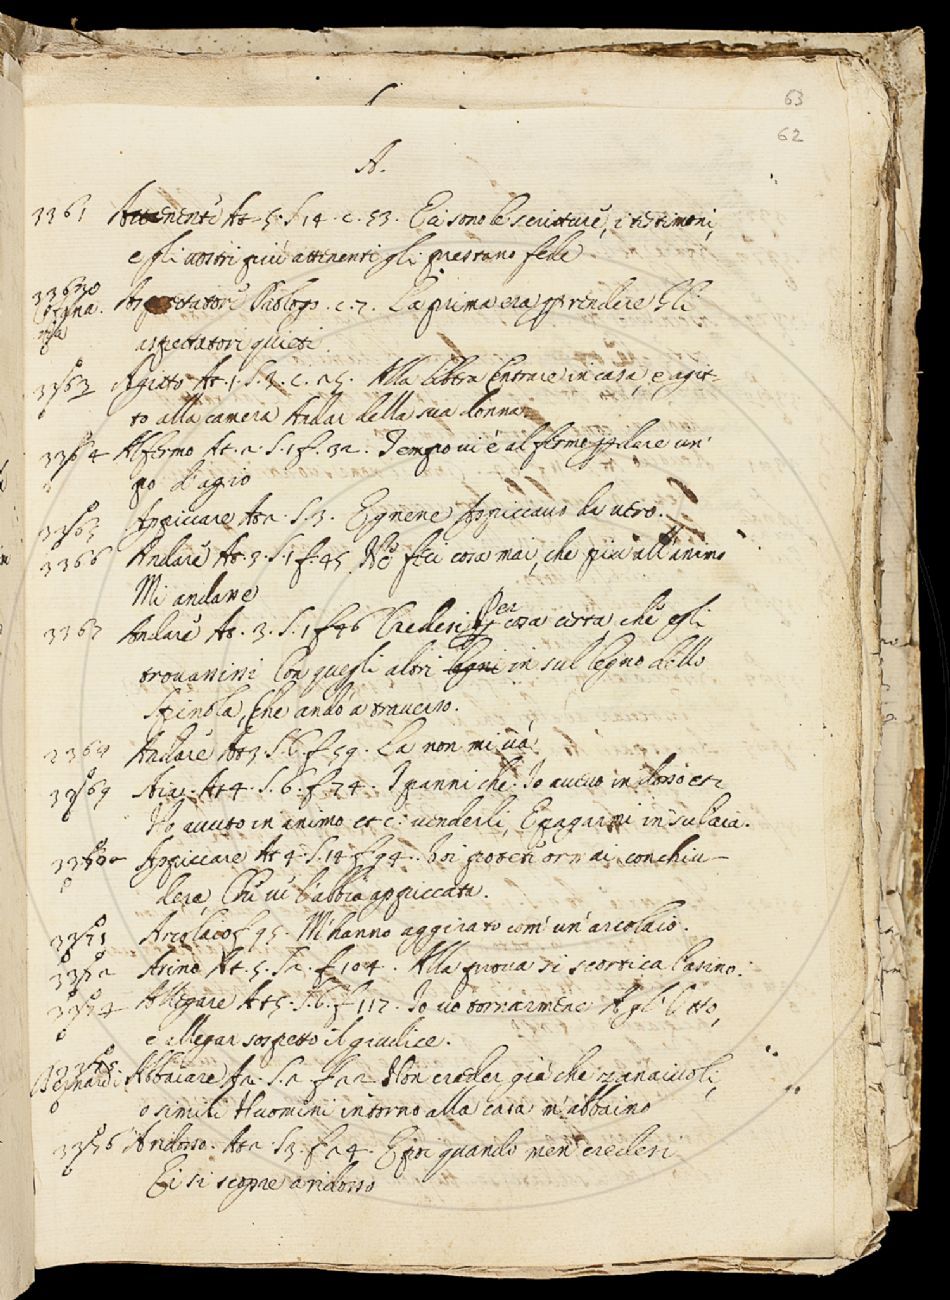 63
62
A.
3361 Attenenti At. 5. S. 14. c. 53. Ci sono le scritture, i testimoni,
e gli vostri più attinenti gli prestano fede
Aspettatori Prologo. c. 7. La prima era per rendere Gli
aspettatori quieti
3363 Agitto At. 1. S. 3. c. 25. Alla libera Entrare in casa, e agit-
to alla camera Andar della sua donna
3364 Al fermo At. 2. S. 1 f. 32. Tempo vi è al fermo per dare un'
po d'agio
Appiccare At 2. S. 3. Egnene Appiccavo di vero.
3366 Andare At. 3. S. 1 f. 45 No feci cosa mai, che più all'animo
Mi andare
3367 Andare At. 3. S. 1 f 46 Credesi Per cosa certa che egli
trovassisi Con quegli altri legni in sul legno dello
Spinola, Che andò a traverso.
Andare At 3. S. 6. f. 59. La non mi và.
3369 Aia. At 4. S. 6. f. 74. I panni che Io avevo in dosso etc
Ho avuto in animo etc: venderli, E pagarmi in su l'aia.
Appiccare At 4. S. 14 f 94. Voi potete ormai conchiu-
dere, Chu vi l'abbia appiccata.
3371 Arcolaio f 95. M'hanno aggirato com' un' arcolaio.
3372 Asino At. 5. S 2. f 104. Alla pruova si scortica l'asino.
3374 Allegare At 5. S. 6. f 112. Io vo tornarmene A gl' letto,
e allegar sospetto il giudice.
3375 Abbacare S 2. f 22 Non creder già che zanaiuoli,
o simili Huomini intorno alla casa m'abbaino
3376 Aridosso. At 2. S 3. f 24. E poi quando men credesi
Ei si scopre a ridosso